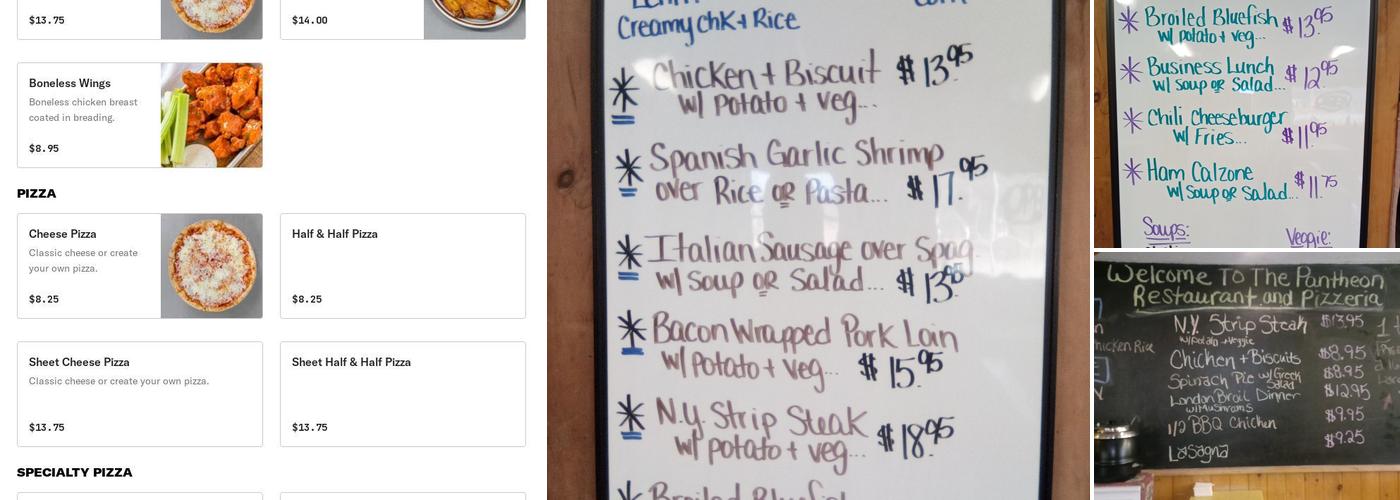 $13.75
$14.00
Boneless Wings
Boneless chicken breast
coated in breading.
$8.95
PIZZA
Cheese Pizza
Classic cheese or create
your own pizza.
$8.25
Half & Half Pizza
$8.25
Sheet Cheese Pizza
Classic cheese or create your own pizza.
$13.75
Sheet Half & Half Pizza
$13.75
SPECIALTY PIZZA
Creamy Chk + Rice
Chicken + Biscuit $13.95
w/ potato + veg...
Spanish Garlic Shrimp
over Rice OR Pasta... $17.95
Italian Sausage over Spag
w/ Soup OR Salad... $13.95
Bacon Wrapped Pork Loin
w/ potato + veg... $15.95
N.Y. Strip Steak
w/ potato + veg... $18.95
Broiled Bluefish
Broiled Bluefish $13.95
w/ potato + veg...
Business Lunch $12.95
w/ Soup OR Salad...
Chili Cheeseburger
w/ Fries... $11.95
Ham Calzone
w/ Soup OR Salad... $11.75
Soups: Veggie:
Welcome To The Pantheon
Restaurant and Pizzeria
N.Y. Strip Steak $13.95
w/ Potato + Veggie
Chicken + Biscuits $8.95
Spinach Pie w/ Greek Salad $8.95
London Broil Dinner $12.95
w/ Mushrooms
1/2 BBQ Chicken $9.95
Lasagna $9.25
hicken Rice